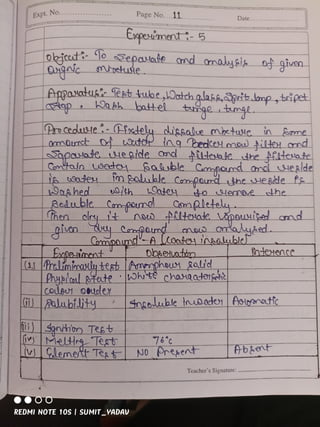 Expt. No. Page No. 11 Date
Experiment:- 5
Object:- To Separate and analysis of given
Orgnic mixture.
Apparatus:- Test tube, Watch glass, Sprit lamp, tripet
Stap, Wash battel
Procedure:- Firstely dissolve mixture in Some
amount of water in a Beeker now filter and
Saparate reside and filterate the filterate
Contain water Saluble Compound and reside
is water in saluble compound the reside is
Washed with Water to remove the
Saluble Compound Completely.
Then dry it now filterate Vapourised and
given dry Compound now analysed.
Compound - A (water insaluble)
Experiment Observation Inference
(i) Preliminary test Amorphour Salid
Physical State White characteristic
colour oader
(ii) Salubility Insoluble In water Aromatic
(iii) Ignition Test
(iv) Melting Test 76°c
(v) Element Test No Present Absent
Teacher's Signature:
REDMI NOTE 10S | SUMIT_YADAV